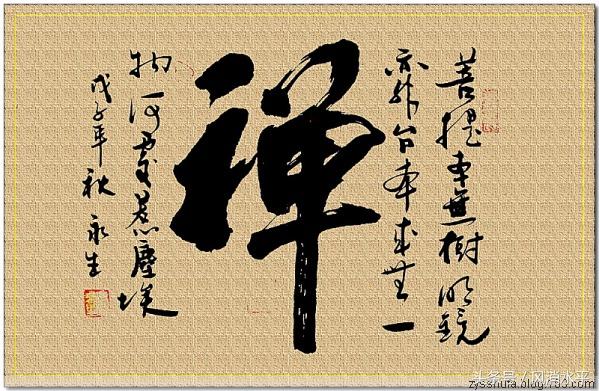 菩提本無樹明鏡
亦非台本来無一
禅
物何處惹塵埃
戊子年秋 永生
头条号 / 风消水平
zysshufa.blog.163.com